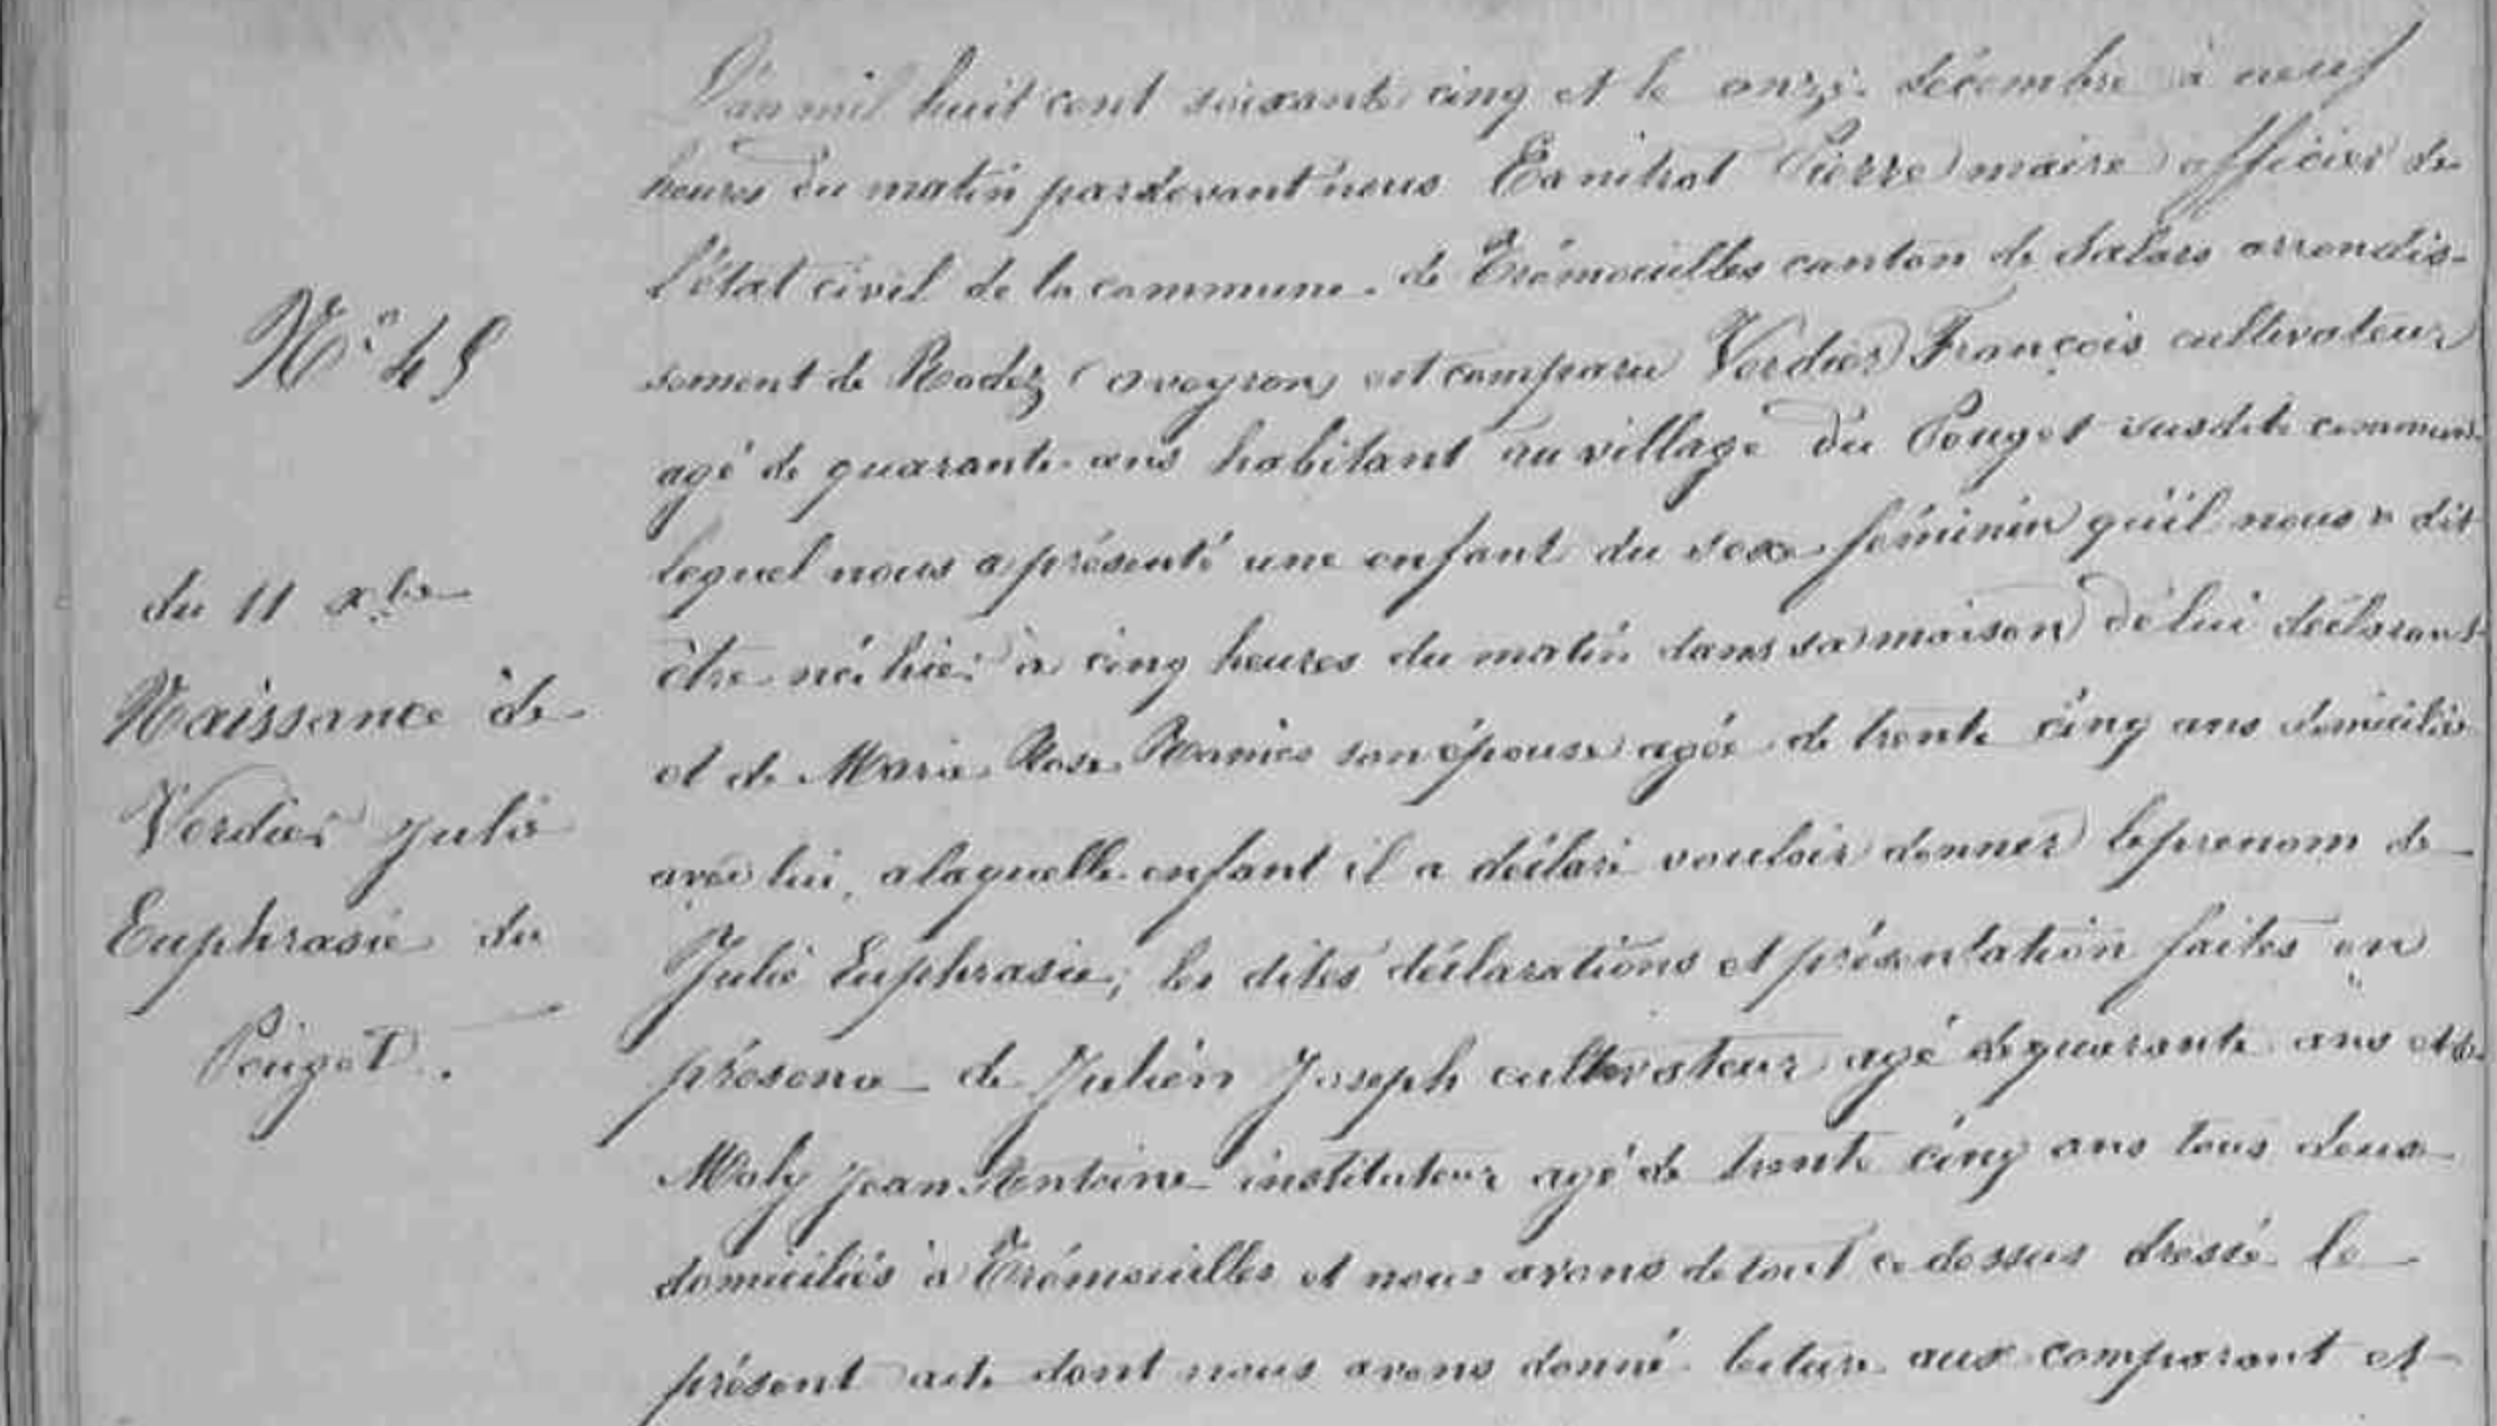 N° 45
du 11 xbre
Naissance de
Verdier Julie
Euphrasie du
Pouget.
L'an mil huit cent soixante cinq et le onze décembre à neuf
heures du matin pardevant nous Pierre maire officier de
l'état civil de la commune de Trémouilles canton de Salars arrondis-
sement de Rodez (aveyron) est comparu Verdier François cultivateur
agé de quarante ans habitant au village du Pouget susdite commune
lequel nous a présenté une enfant du sexe féminin qu'il nous a dit
être née hier à cinq heures du matin dans sa maison de lui déclarant
et de Marie Rose son épouse agée de trente cinq ans domiciliée
avec lui, a laquelle enfant il a déclaré vouloir donner le prenom de
Julie Euphrasie, les dites déclarations et présentation faites en
présence de Julien Joseph cultivateur agé de quarante ans et de
Maly Jean Antoine instituteur agé de trente cinq ans tous deux
domiciliés à Trémouilles et nous avons de tout ce dessus dressé le
présent acte dont nous avons donné lecture aux comparant et